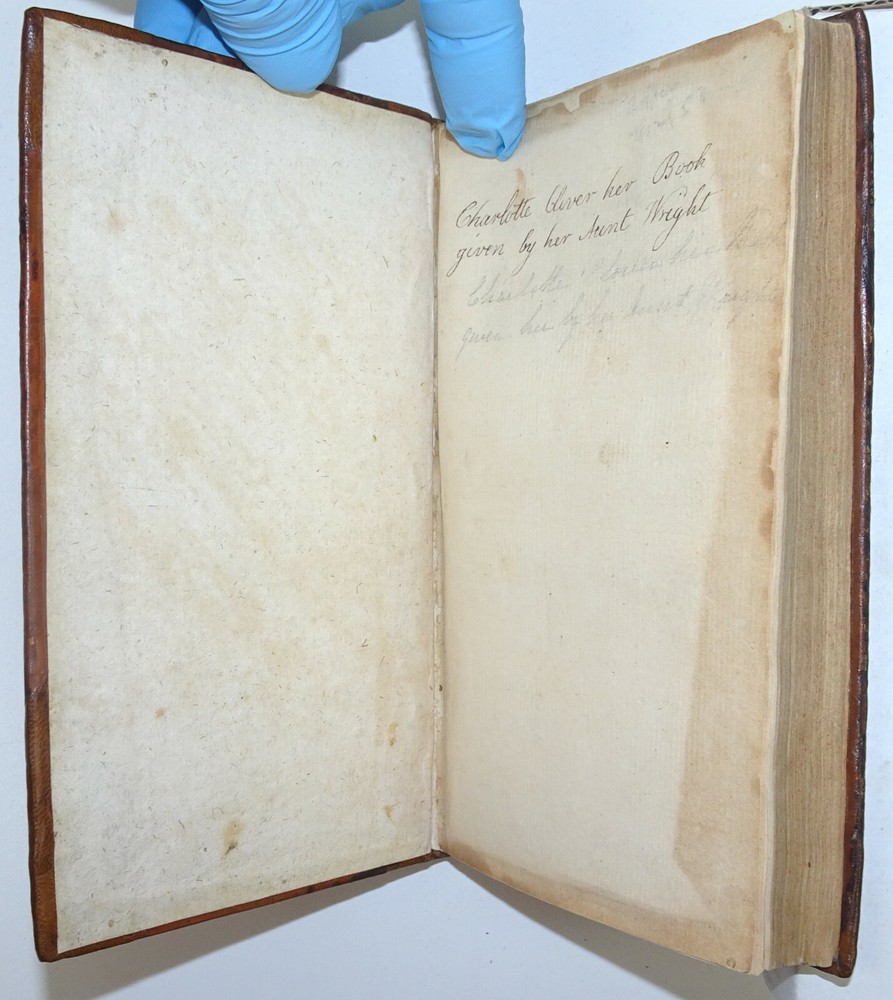 Charlotte Oliver her Book
given by her Aunt Wright
Charlotte her
given her by her Aunt Wright